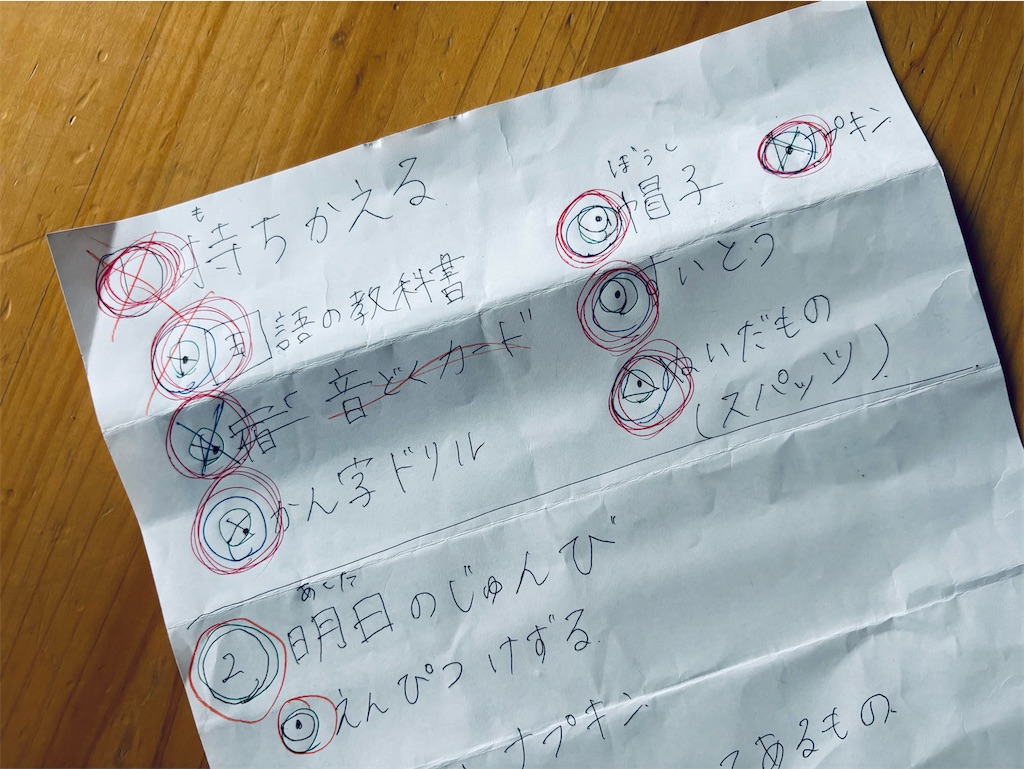 持ちかえる
も
国語の教科書
音どくカード
かん字ドリル
帽子
ぼうし
すいとう
ぬいだもの
(スパッツ)
ナプキン
2 明日のじゅんび
あした
えんぴつけずる
ナプキン
あるもの